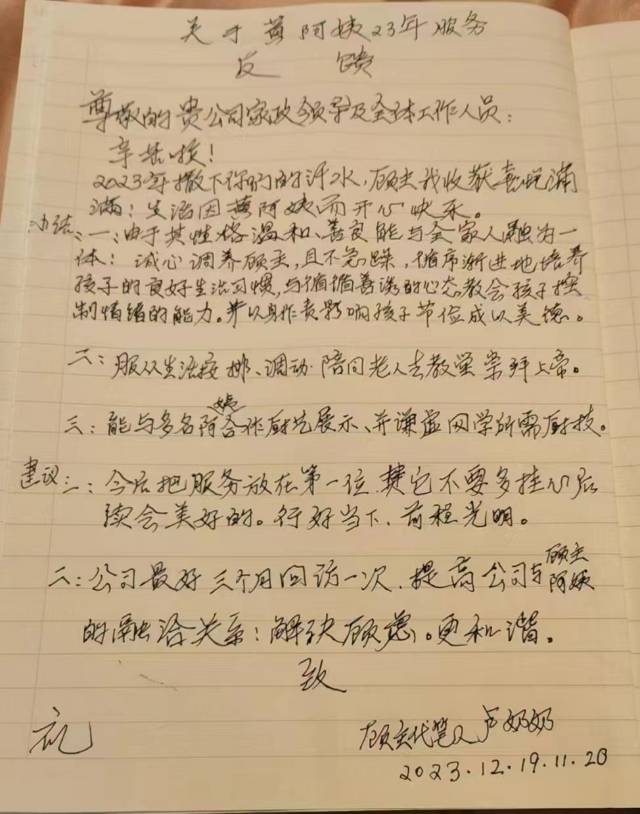 关于黄阿姨23年服务
反馈
尊敬的贵公司家政领导及全体工作人员：
辛苦啦！
2023年撒下你们的汗水，顾主我收获喜悦满
满！生活因黄阿姨而开心快乐。
一：由于其性格温和、善良能与全家人融为一
体：诚心调养顾主，且不急躁，循序渐进地培养
孩子的良好生活习惯，与循循善诱的心态教会孩子控
制情绪的能力。并以身作表影响孩子节俭成以美德。
二：服从生活安排、调动陪同老人去教堂崇拜上帝。
三：能与多名阿姨合作厨艺展示、并谦虚同学所需厨技。
建议：一：今后把服务放在第一位其它不要多挂心后
续会美好的。行好当下，前程光明。
二：公司最好三个月回访一次，提高公司与顾主阿姨
的融洽关系：解决顾虑。更和谐。
致
礼
顾主代笔人卢奶奶
2023.12.19.11.20